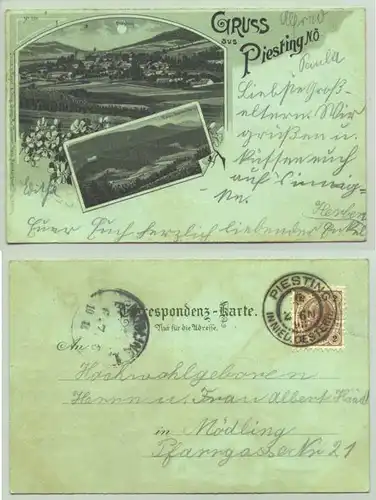 GRUSS
aus
Piesting N.Ö.
Alfred
Paula
Liebste Groß-
eltern. Wir
grüßen u.
küssen euch
auf's innig-
ste.
Euer Euch herzlich liebender Enkel
Correspondenz-Karte.
Nur für die Adresse.
An
PIESTING
IN NIED. OESTERR.
Hochwohlgeboren
Herrn u. Frau Albert
in Mödling
Pfarrgasse Nr 21